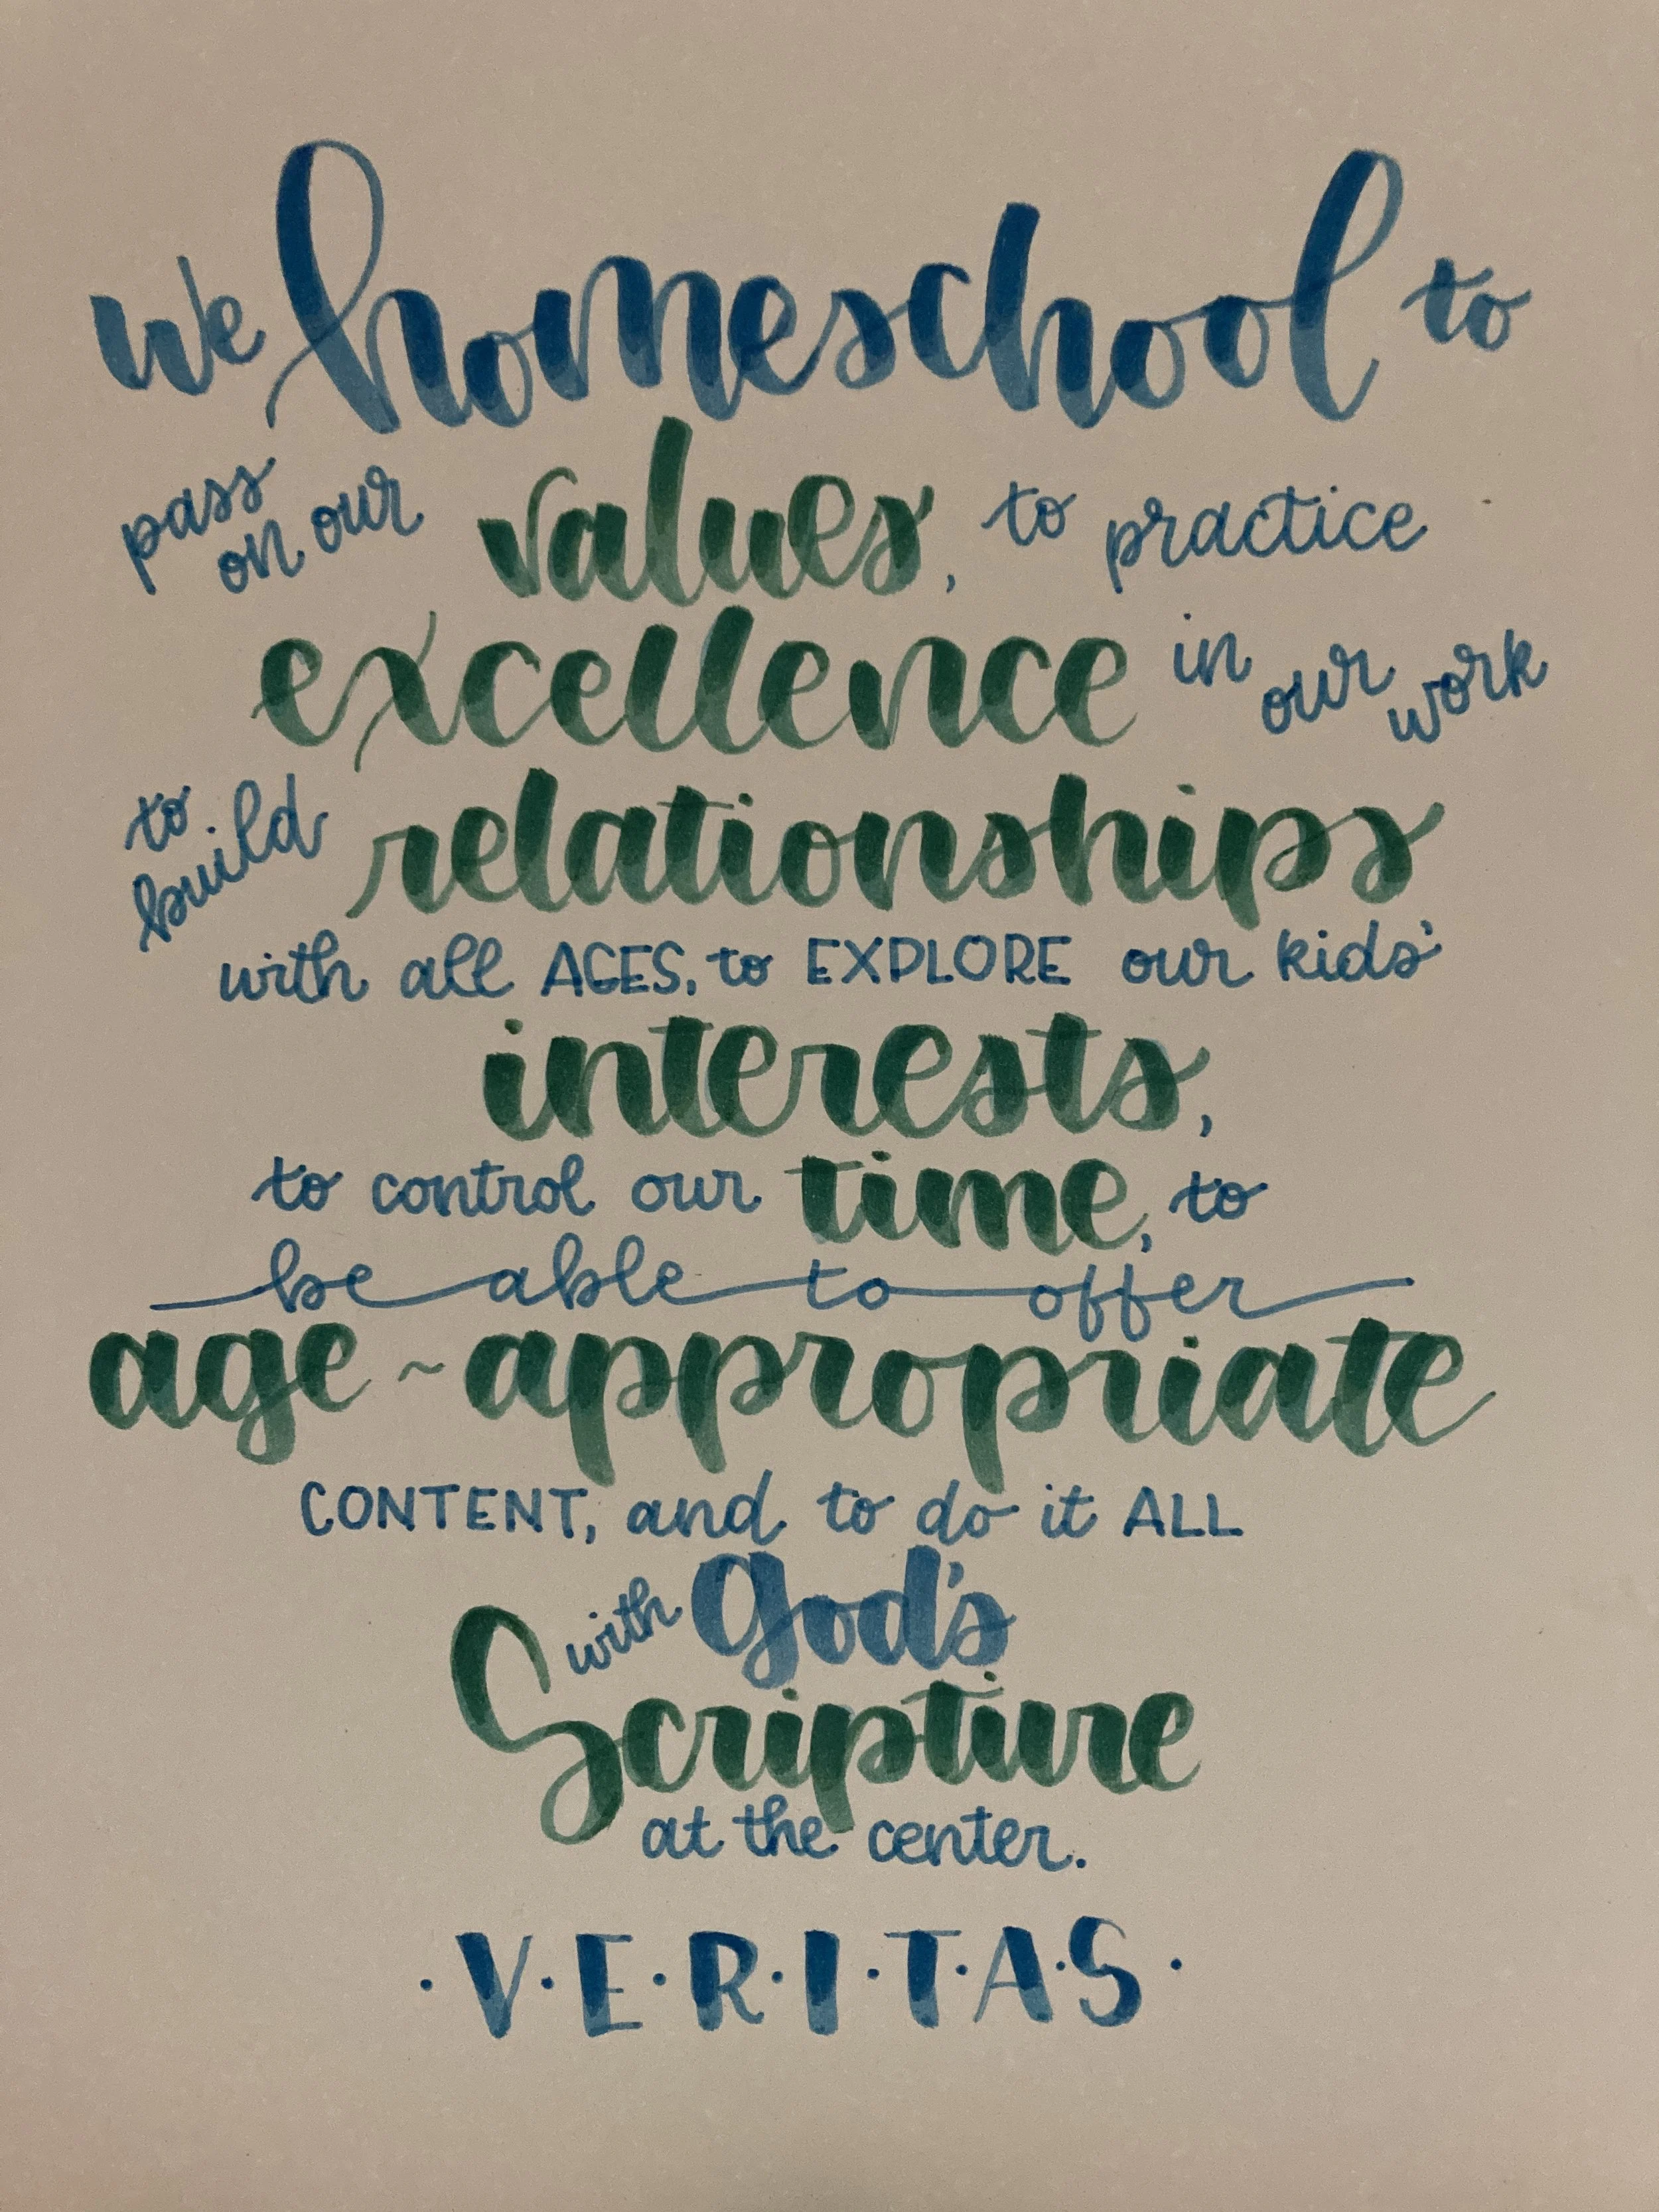 we homeschool to
pass on our values, to practice
excellence in our work
to build relationships
with all AGES, to EXPLORE our kids'
interests,
to control our time, to
be able to offer
age~appropriate
CONTENT, and to do it ALL
with God's
Scripture
at the center.
·V·E·R·I·T·A·S·